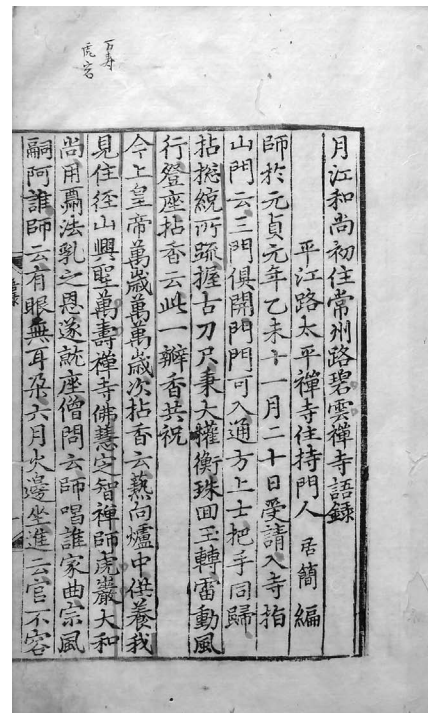 万寿
虎岩
月江和尚初住常州路碧雲禪寺語錄
平江路太平禪寺住持門人 居簡 編
師於元貞元年乙未十一月二十日受請入寺指
山門云三門俱開門門可入通方上士把手同歸
拈揔統所疏握古刀尺秉大權衡珠回玉轉雷動風
行登座拈香云此一瓣香共祝
今上皇帝萬歲萬萬歲次拈香云爇向爐中供養我
見住徑山興聖萬壽禪寺佛慧定智禪師虎巖大和
尚用酬法乳之恩遂就座僧問云師唱誰家曲宗風
嗣阿誰師云有眼無耳朶六月火邊坐進云官不容